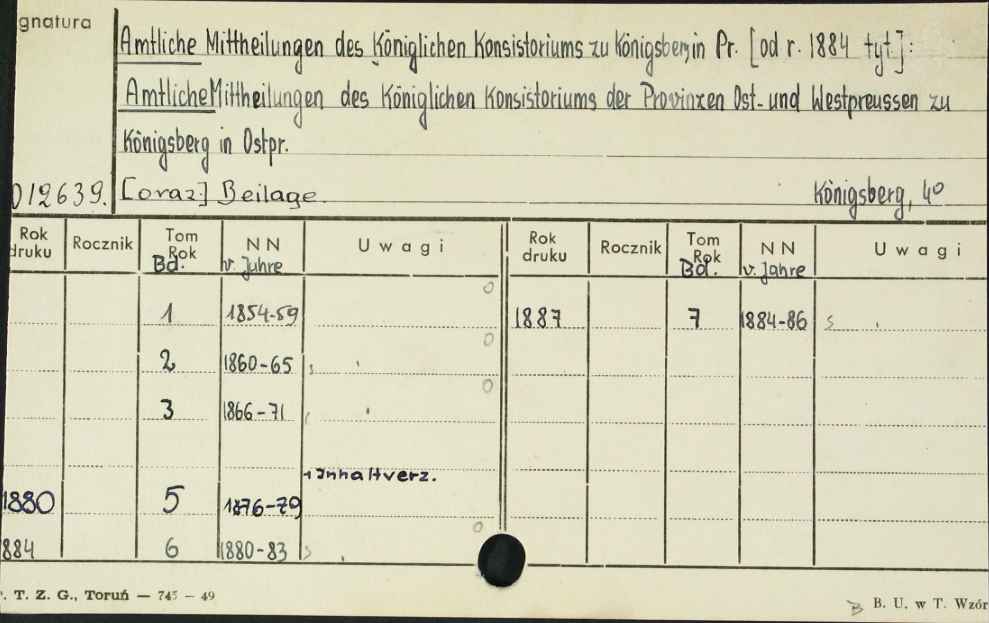 gnatura
Amtliche Mittheilungen des Königlichen Konsistoriums zu Königsberg in Pr. [od r. 1884 tyt.]:
Amtliche Mittheilungen des Königlichen Konsistoriums der Provinzen Ost- und Westpreussen zu
Königsberg in Ostpr.
012639. [oraz:] Beilage. Königsberg, 4°
Rok druku Rocznik Tom Rok Bd. NN v. Jahre Uwagi Rok druku Rocznik Tom Rok Bd. NN v. Jahre Uwagi
1 1854-59 0 1887 7 1884-86 s
2 1860-65 0
3 1866-71 0
+ Inhaltverz.
1880 5 1876-79
884 6 1880-83 s 0
. T. Z. G., Toruń — 745 — 49
B B. U. w T. Wzór